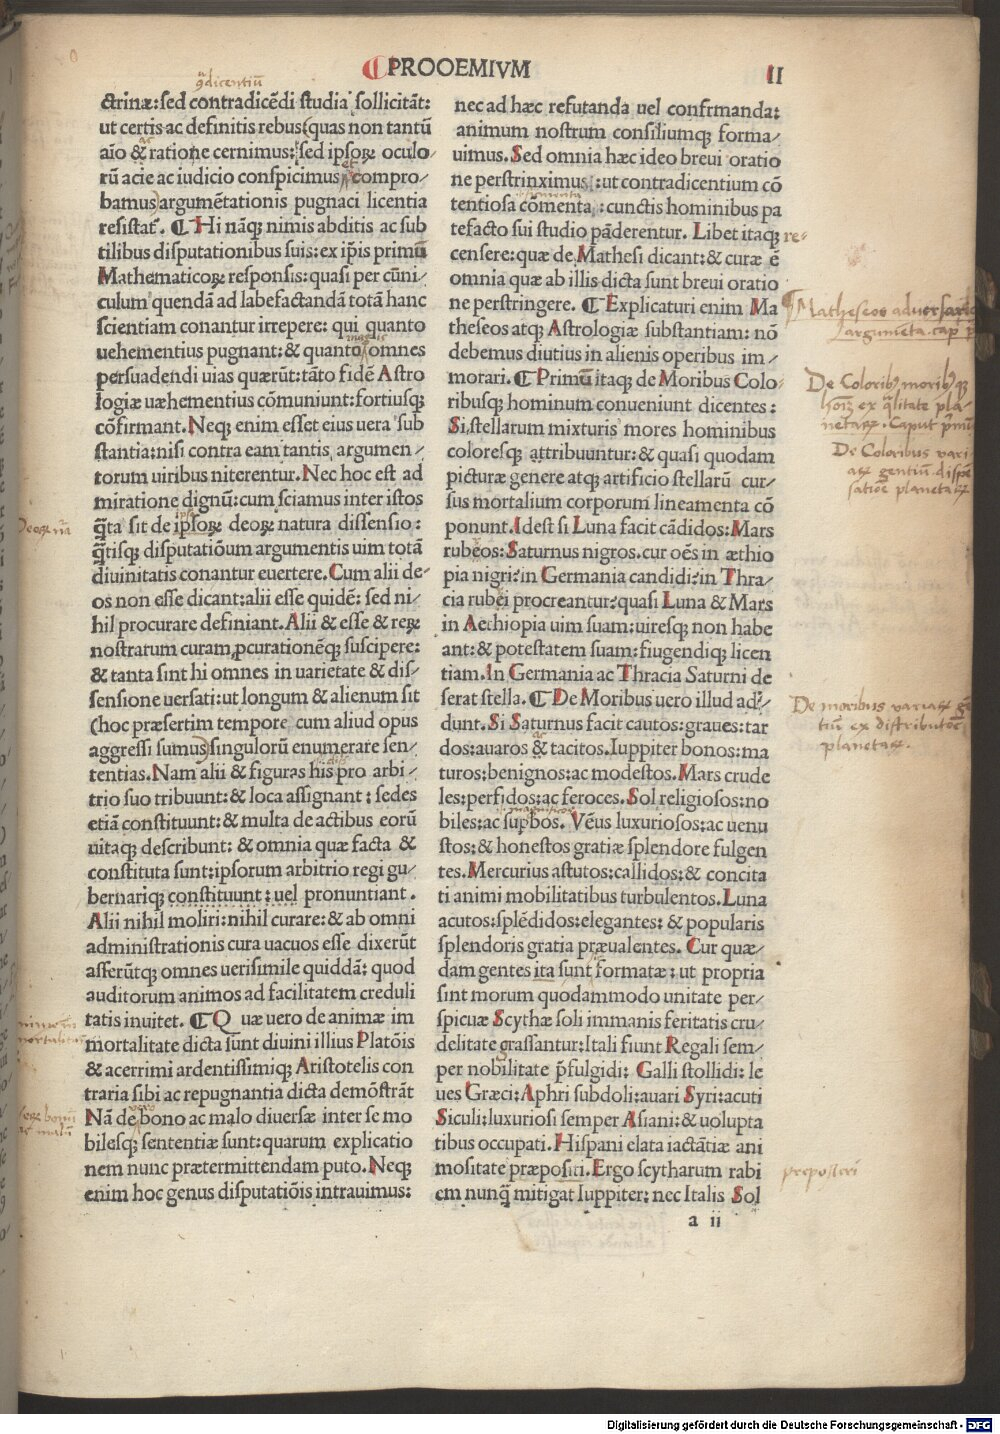 PROOEMIVM
II
ꝯ̃dicentiũ
ctrinæ: sed contradicẽdi studia sollicitãt:
ut certis ac definitis rebus (quas non tantũ
aĩo & ratione cernimus: sed ipsoꝝ oculo⸗
rũ acie ac iudicio conspicimus compro⸗
bamus) argumẽtationis pugnaci licentia
resistat̃. ¶ Hi nãq; nimis abditis ac sub
tilibus disputationibus suis: ex ip̃is primũ
Mathematicoꝝ responsis: quasi per cũni⸗
culum quendã ad labefactandã totã hanc
scientiam conantur irrepere: qui quanto
uehementius pugnant: & quanto omnes
persuadendi uias quærũt: tãto fidẽ Astro
logiæ uæhementius cõmuniunt: fortiusq;
cõfirmant. Neq; enim esset eius uera sub
stantia: nisi contra eam tantis argumen⸗
torum uiribus niterentur. Nec hoc est ad
miratione dignũ: cum sciamus inter istos
q̃ta sit de ipsoꝝ deoꝝ natura dissensio:
q̃tisq; disputatiõum argumentis uim totã
diuinitatis conantur euertere. Cum alii de⸗
os non esse dicant: alii esse quidẽ: sed ni⸗
hil procurare definiant. Alii & esse & reꝝ
nostratum curam, ꝓcurationẽq; suscipere:
& tanta sint hi omnes in uarietate & dis⸗
sensione uersati: ut longum & alienum sit
(hoc præsertim tempore cum aliud opus
aggressi sumus) singulorũ enumerare sen⸗
tentias. Nam alii & figuras his pro arbi⸗
trio suo tribuunt: & loca assignant: sedes
etiã constituunt: & multa de actibus eorũ
uitaq; describunt: & omnia quæ facta &
constituta sunt: ipsorum arbitrio regi gu⸗
bernariq; constituunt: uel pronuntiant.
Alii nihil moliri: nihil curare: & ab omni
administrationis cura uacuos esse dixerũt
afferũtq; omnes uerisimile quiddã: quod
auditorum animos ad facilitatem creduli
tatis inuitet. ¶ Quæ uero de animæ im
mortalitate dicta sunt diuini illius Platõis
& acerrimi ardentissimiq; Aristotelis con
traria sibi ac repugnantia dicta demõstrãt
Nã de bono ac malo diuersæ inter se mo
bilesq; sententiæ sunt: quarum explicatio
nem nunc prætermittendam puto. Neq;
enim hoc genus disputatiõis intrauimus:
nec ad hæc refutanda uel confrmanda:
animum nostrum consiliumq; forma⸗
uimus. Sed omnia hæc ideo breui oratio
ne perstrinximus: ut contradicentium cõ
tentiosa cõmenta: cunctis hominibus pa
tefacto sui studio pãderentur. Libet itaq; re⸗
censere: quæ de Mathesi dicant: & curæ ẽ
omnia quæ ab illis dicta sunt breui oratio
ne perstringere. ¶ Explicaturi enim Ma
theseos atq; Astrologiæ substantiam: nõ
debemus diutius in alienis operibus im⸗
morari. ¶ Primũ itaq; de Moribus Colo⸗
ribusq; hominum conueniunt dicentes:
Si stellarum mixturis mores hominibus
coloresq; attribuuntur: & quasi quodam
picturæ genere atq; artificio stellarũ cur⸗
sus mortalium corporum lineamenta cõ
ponunt. Idest si Luna facit cãdidos: Mars
rubeos: Saturnus nigros. cur oẽs in æthio
pia nigri: in Germania candidi: in Thra⸗
cia rubei procreantur: quasi Luna & Mars
in Aethiopia uim suam: uiresq; non habe
ant: & potestatem suam: fiugendiq; licen
tiam. In Germania ac Thracia Saturni de
serat stella. ¶ De Moribus uero illud ad⸗
dunt. Si Saturnus facit cautos: graues: tar
dos: auaros & tacitos. Iuppiter bonos: ma
turos: benignos: ac modestos. Mars crude
les: perfidos: ac feroces. Sol religiosos: no
biles: ac supbos. Vẽus luxuriosos: ac uenu
stos: & honestos gratiæ splendore fulgen
tes. Mercurius astutos: callidos: & concita
ti animi mobilitatibus turbulentos. Luna
acutos: splẽdidos: elegantes: & popularis
splendoris gratia præualentes. Cur quæ⸗
dam gentes ita sunt formatæ: ut propria
sint morum quodammodo unitate per⸗
spicuæ Scythæ soli immanis feritatis cru⸗
delitate grassantur: Itali fiunt Regali sem⸗
per nobilitate p̃fulgidi: Galli stollidi: le
ues Græci: Aphri subdoli: auari Syri: acuti
Siculi: luxuriosi semper Asiani: & uolupta
tibus occupati. Hispani elata iactãtiæ ani
mositate præpositi. Ergo scytharum rabi
em nunq̃ mitigat Iuppiter: nec Italis Sol
a ii
Matheseos aduersariorũ
argumẽta. cap̃ p̃
De Coloribꝰ, moribꝰq;
hoĩꝝ ex q̃litate pla⸗
netaꝝ. Caput p̃mũ
De Coloribus vari
aꝝ gentiũ dispẽ
satiõe planetaꝝ
De moribus variaꝝ gẽ
tiũ ex distributiõe
planetaꝝ.
preposteri
Deoꝝ nã
Digitalisierung gefördert durch die Deutsche Forschungsgemeinschaft - DFG